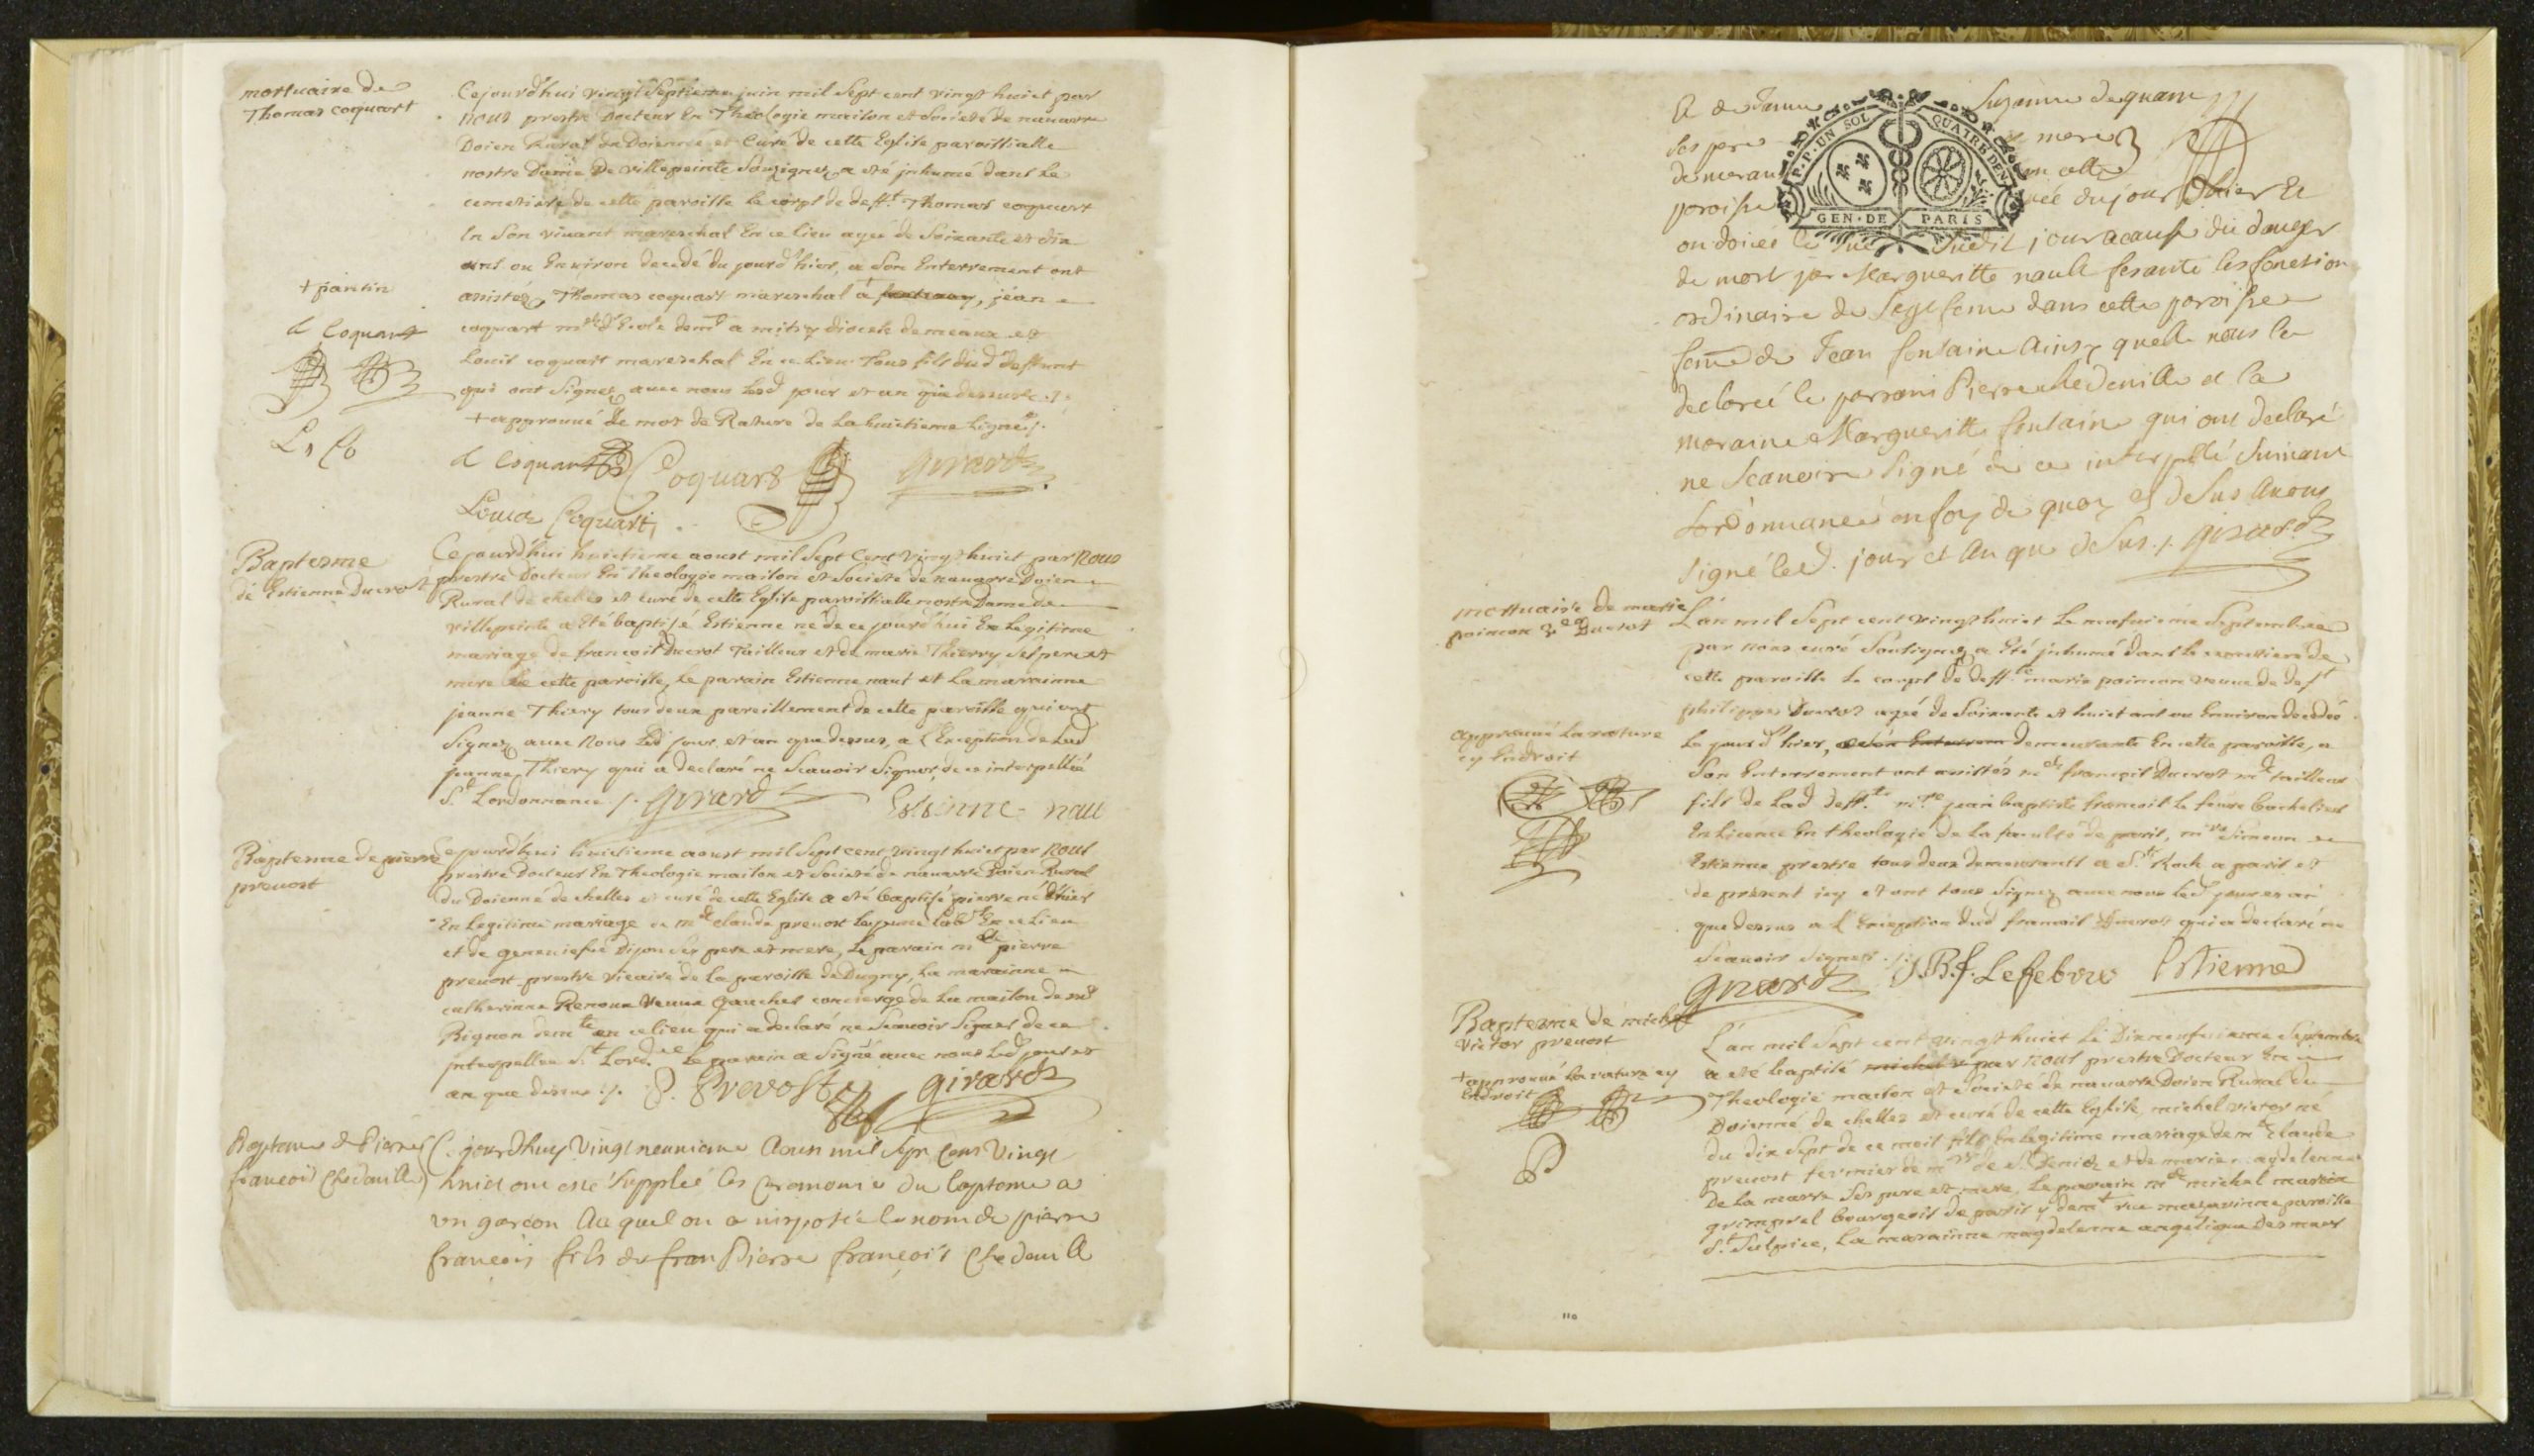 mortuaire de
Thomas coquart
Cejourdhui vingt Septieme juin mil Sept cent vingt huict par
nous prestre Docteur En Theologie maison et Societé de nauarre
Doien Rural du Doienné et Curé de cette Eglise paroissialle
nostre Dame De villepeinte Sousignez a eté jnhumé dans Le
cemetiere de cette paroisse Le corps de deff.t Thomas coquart
En Son viuant mareschal En ce lieu agee de Soixante et dix
ans ou Enuiron decedé du jourd'hier, a Son Enterrement ont
assistéz Thomas coquart mareschal à , jean
+ pantin
coquart m.e d'Ecole dem.t a mitry diocese de meaux et
Louis coquart mareschal En ce Lieu Tous fils dud deffunt
qui ont Signez auec nous Led jour et an que dessus ./.
+ approuué Le mot de Rature de La huictieme Ligne ./.
d Coquart
L, Co
d Coquart Coquart girard
Louis Coquart
Baptesme
de Estienne Ducrot
Cejourd'hui huictieme aoust mil Sept Cent vingt huict par Nous
prestre Docteur En Theologie maison et Societé de nauarre Doien
Rural de chelles et curé de cette Eglise paroissialle nostre Dame de
villepeinte a Eté baptisé Estienne né de ce jourd'hui En Legitime
mariage de francois Ducrot Tailleur et de marie Thierry Ses pere et
mere de cette paroisse, Le parain Estienne naut et La marainne
jeanne Thiery tous deux pareillement de cette paroisse qui ont
Signez auec Nous Led jour et an que dessus, a L'Exception de Lad
jeanne Thiery qui a declaré ne Scauoir Signer, de ce interpellée
S.t Lordonnance ./. girard Estienne nau
Baptesme de pierre
preuost
Cejourd'hui huictieme aoust mil Sept cent vingt huict par Nous
prestre Docteur En Theologie maison et Societé de nauarre Doien Rural
du Doienné de chelles et curé de cette Eglise a eté baptisé pierre né d'hier
En Legitime mariage de m.e claude preuost Le jeune Lab.r En ce Lieu
et de geneuiefue Dijon Ses pere et mere, Le parain m.e pierre
preuost prestre vicaire de La paroisse de Dugny, La marainne
catherinne Renoux Veuue gaucher concierge de La maison de m.r
Bignon dem.te en ce lieu qui a declaré ne Scauoir Signer de ce
jnterpellee S.t Lord.ce Le parain a Signé auec nous Led jour et
an que dessus ./. P. Prevost girard
Baptesme de Pierre
francois Chedeuille
Ce jourdhuy Vingt neuuieme Aoust mil Sept Cent Vingt
huict ont esté Supplée les Ceremonie du baptesme a
vn garcon Auquel on a imposée le nom de pierre
francois fils de fran Pierre francois Chedeuille
P.P. UN SOL QUATRE DEN.
GEN. DE PARIS
& de Suzanne dequam
Ses pere mere
demeurant en cette
paroisse née du jour d'hier Et
ondoiée le Susdit jour a cause du danger
de mort par Margueritte nault fesante les fonction
ordinaire de Sage feme dans cette paroisse
feme de Jean fontaine Ainsy quelle nous la
declareé le parrain Pierre chedeuille et la
maraine Margueritte fontaine qui ont declaré
ne Scauoire Signé de ce interpellé Suiuant
lordonnanceé en foy de quoy et desus Auons
Signé led. jour et An que desus ./. girard
mortuaire de marie
poinion v.e Ducrot
L'an mil Sept cent vingt huict Le neufuieme Septembre
par nous curé Sousignez a Eté jnhumé dans le cemetiere de
cette paroisse Le corps de deff.te marie poinion veuue de deff.t
philippes Ducrot ageé de Soixante et huict ans ou Enuiron decedée
Le jourd'hier, a Son Enterrem demeurante En cette paroisse, a
approuué La rature
cy Endroit
Son Enterrement ont assistés m.e francois Ducrot m.d tailleur
fils de Lad deff.te m.re jean baptiste francois Le feure bachelier
En Licence En theologie de La faculté de paris, m.re Simeon
Estienne prestre tous deux demeurants a S.t Roch a paris et
de présent icy et ont tous Signez auec nous Led jour et an
que dessus a L'Exception dud francois Ducrot qui a declaré ne
Scauoir Signer ./.
girard J.B.f. Lefebvre Estienne
Baptesme de michel
victor preuost
L'an mil Sept cent vingt huict Le Dixneufuieme Septembre
a eté baptisé michel v par nous prestre Docteur En
+ approuué La rature cy
Endroit
Theologie maison et Societé de nauarre Doien Rural du
Doienné de chelles et curé de cette Eglise michel victor né
du dix Sept de ce mois fils En Legitime mariage de m.e Claude
preuost fermier de m.rs de S.t Denis et de marie magdelenne
De La marre Ses pere et mere, Le parain m.e michel martin
quimprel bourgeois de paris y dem.t rue mezarinne paroisse
S.t Sulpice, La marainne magdelenne angelique Desmars
110